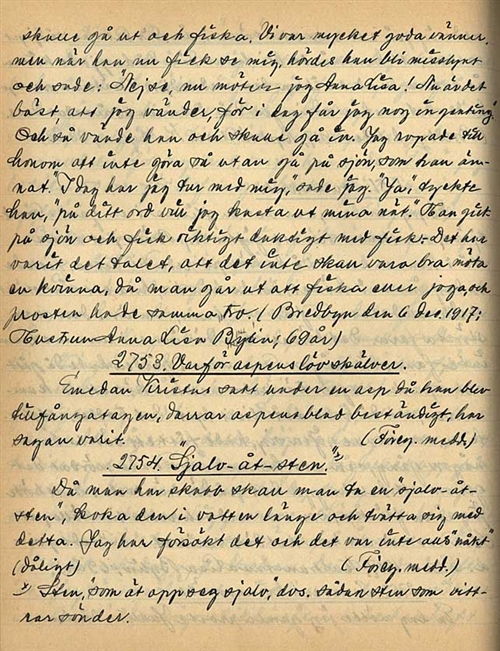 skulle gå ut och fiska. Vi var mycket goda vänner,
men när han nu fick se mig, hördes han bli misslynt
och sade: "Nej se, nu möter jag Anna Lisa! Nu är det
bäst att jag vänder, för i dag får jag nog ingenting."
Och så vände han och skulle gå in. Jag ropade till
honom att inte göra så utan gå på sjön, som han äm-
nat. "I dag har jag tur med mig," sade jag. "Ja," tyckte
han, "på ditt ord vill jag kasta ut mina nät." Han gick
på sjön och fick riktigt duktigt med fisk. Det har
varit det talet, att det inte skall vara bra möta
en kvinna, då man går ut att fiska eller jaga, och
prosten hade samma tro. (Bredbyn den 6 dec. 1917;
Hustrun Anna Lisa 69 år)
2753. Varför aspens löv skälver.
Emedan Kristus satt under en asp då han blev
tillfångatagen, darrar aspens blad beständigt, har
sagan varit. (Föreg. medd.)
2754. "Sjalv-åt-sten." x)
Då man har skabb skall man ta en "sjalv-åt-
sten", koka den i vatten länge och tvätta sig med
detta. Jag har försökt det och det var inte alls "nåkt"
(dåligt) (Föreg. medd.)
x) Sten, "som åt opp seg sjalv", dvs. sådan sten som vitt-
rar sönder.